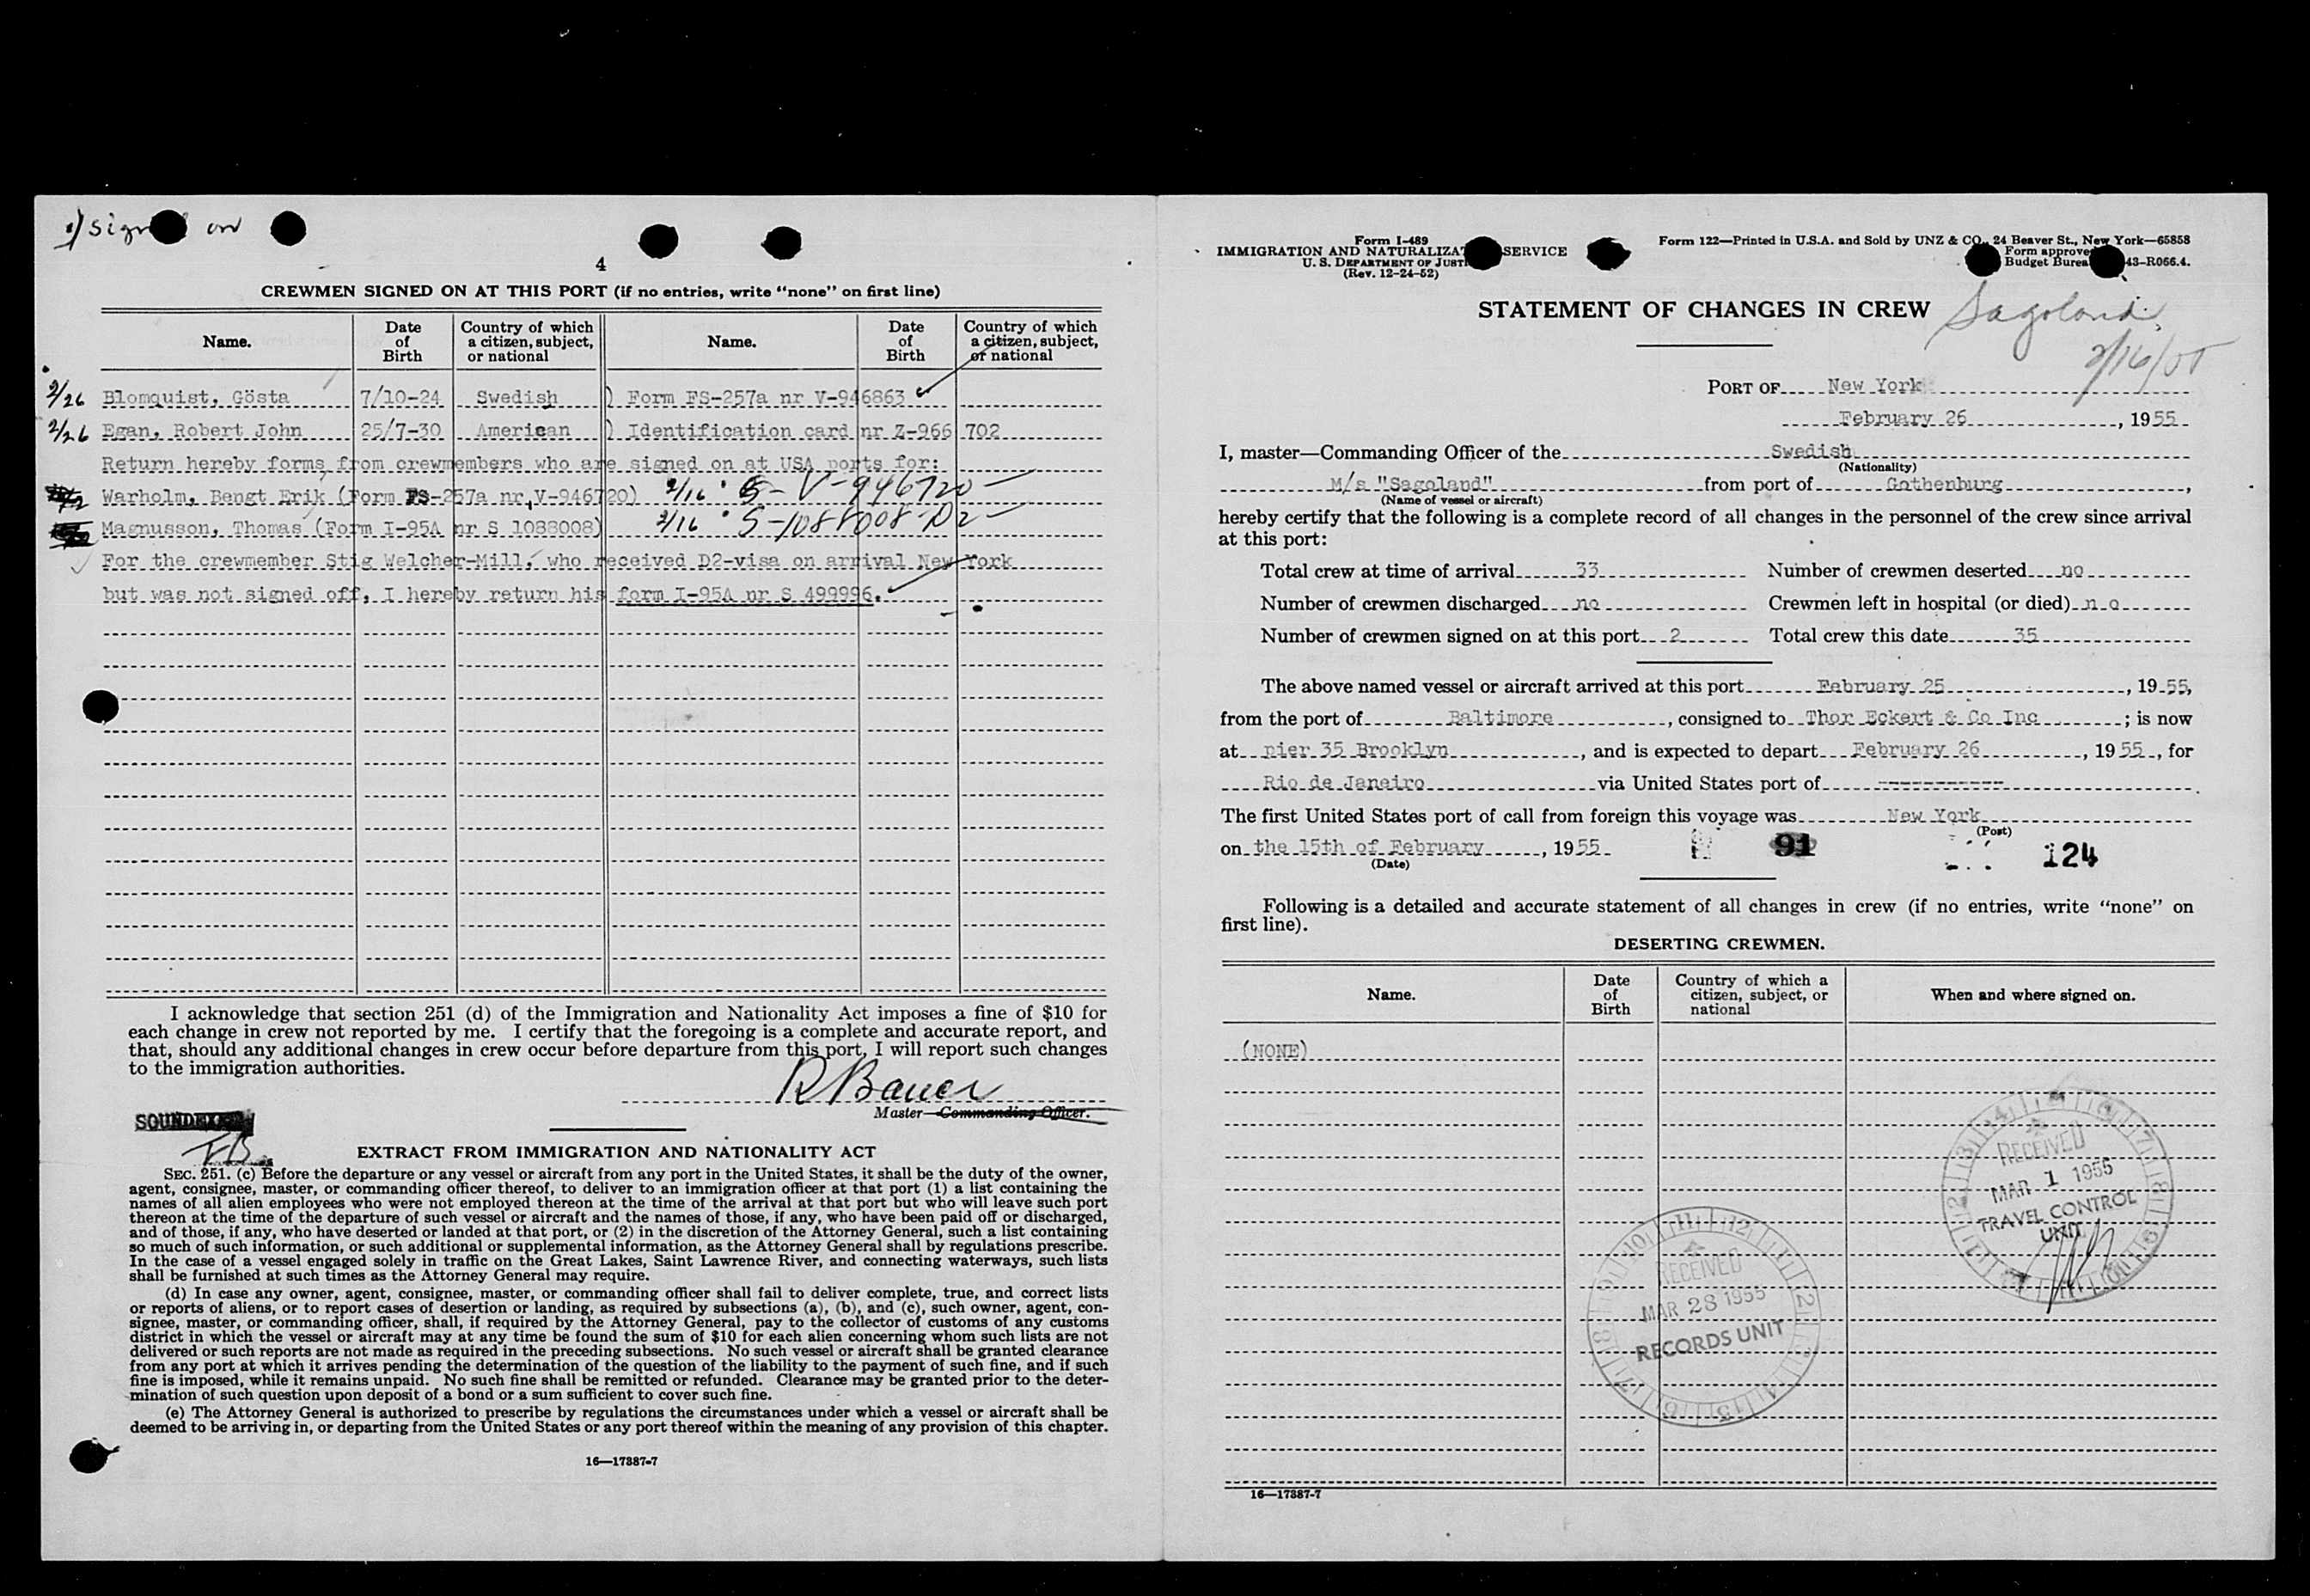 1) signed on
4
CREWMEN SIGNED ON AT THIS PORT (if no entries, write “none” on first line)
Name. Date of Birth Country of which a citizen, subject, or national Name. Date of Birth Country of which a citizen, subject, or national
2/26 Blomquist, Gösta 7/10-24 Swedish ) Form FS-257a nr V-946863
2/26 Egan, Robert John 25/7-30 American ) Identification card nr Z-966 702
Return hereby forms from crewmembers who are signed on at USA ports for:
Warholm, Bengt Erik (Form FS-257a nr V-946720) 2/16 V-946720
Magnusson, Thomas (Form I-95A nr S 1088008) 2/16 S-1088008-D2
For the crewmember Stig Welcher-Mill, who received D2-visa on arrival New York
but was not signed off, I hereby return his form I-95A nr S 499996.
I acknowledge that section 251 (d) of the Immigration and Nationality Act imposes a fine of $10 for
each change in crew not reported by me. I certify that the foregoing is a complete and accurate report, and
that, should any additional changes in crew occur before departure from this port, I will report such changes
to the immigration authorities.
RBauer
Master—Commanding Officer.
SOUNDEXED
EXTRACT FROM IMMIGRATION AND NATIONALITY ACT
SEC. 251. (c) Before the departure or any vessel or aircraft from any port in the United States, it shall be the duty of the owner,
agent, consignee, master, or commanding officer thereof, to deliver to an immigration officer at that port (1) a list containing the
names of all alien employees who were not employed thereon at the time of the arrival at that port but who will leave such port
thereon at the time of the departure of such vessel or aircraft and the names of those, if any, who have been paid off or discharged,
and of those, if any, who have deserted or landed at that port, or (2) in the discretion of the Attorney General, such a list containing
so much of such information, or such additional or supplemental information, as the Attorney General shall by regulations prescribe.
In the case of a vessel engaged solely in traffic on the Great Lakes, Saint Lawrence River, and connecting waterways, such lists
shall be furnished at such times as the Attorney General may require.
(d) In case any owner, agent, consignee, master, or commanding officer shall fail to deliver complete, true, and correct lists
or reports of aliens, or to report cases of desertion or landing, as required by subsections (a), (b), and (c), such owner, agent, con-
signee, master, or commanding officer, shall, if required by the Attorney General, pay to the collector of customs of any customs
district in which the vessel or aircraft may at any time be found the sum of $10 for each alien concerning whom such lists are not
delivered or such reports are not made as required in the preceding subsections. No such vessel or aircraft shall be granted clearance
from any port at which it arrives pending the determination of the question of the liability to the payment of such fine, and if such
fine is imposed, while it remains unpaid. No such fine shall be remitted or refunded. Clearance may be granted prior to the deter-
mination of such question upon deposit of a bond or a sum sufficient to cover such fine.
(e) The Attorney General is authorized to prescribe by regulations the circumstances under which a vessel or aircraft shall be
deemed to be arriving in, or departing from the United States or any port thereof within the meaning of any provision of this chapter.
16—17387-7
Form I-489
IMMIGRATION AND NATURALIZATION SERVICE
U. S. DEPARTMENT OF JUSTICE
(Rev. 12-24-52)
Form 122—Printed in U.S.A. and Sold by UNZ & CO., 24 Beaver St., New York—65858
Form approved
Budget Bureau 43-R066.4.
STATEMENT OF CHANGES IN CREW
Sagoland
2/16/55
PORT OF New York
February 26, 1955
I, master—Commanding Officer of the Swedish
(Nationality)
M/s "Sagoland" from port of Gothenburg,
(Name of vessel or aircraft)
hereby certify that the following is a complete record of all changes in the personnel of the crew since arrival
at this port:
Total crew at time of arrival 33 Number of crewmen deserted no
Number of crewmen discharged no Crewmen left in hospital (or died) n o
Number of crewmen signed on at this port 2 Total crew this date 35
The above named vessel or aircraft arrived at this port February 25, 1955,
from the port of Baltimore, consigned to Thor Eckert & Co Inc; is now
at pier 35 Brooklyn, and is expected to depart February 26, 1955, for
Rio de Janeiro via United States port of -----------
The first United States port of call from foreign this voyage was New York
(Port)
on the 15th of February, 1955
(Date)
91
124
Following is a detailed and accurate statement of all changes in crew (if no entries, write “none” on
first line).
DESERTING CREWMEN.
Name. Date of Birth Country of which a citizen, subject, or national When and where signed on.
(NONE)
RECEIVED
MAR 1 1955
TRAVEL CONTROL
UNIT
RECEIVED
MAR 28 1955
RECORDS UNIT
16—17387-7